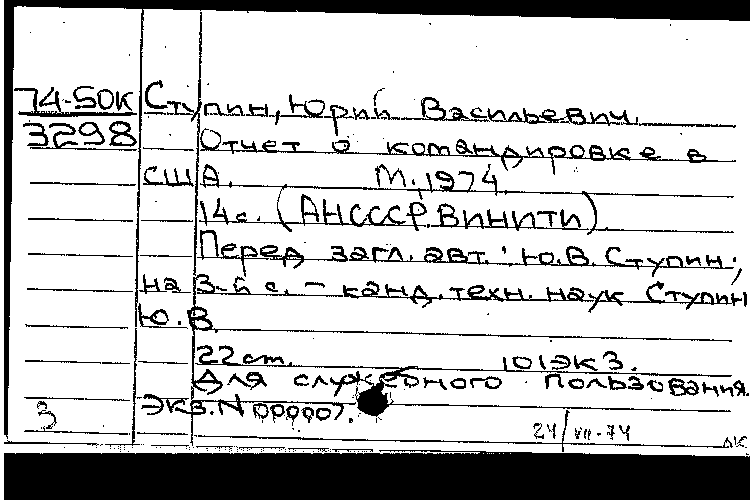 74-50К Ступин, Юрий Васильевич.
3298 Отчет о командировке в
США. М., 1974.
14 с. (АН СССР. ВИНИТИ)
Перед загл. авт.: Ю.В. Ступин;
на 3-й с. - канд. техн. наук Ступин
Ю.В.
22 cm. 101 экз.
Для служебного пользования.
Экз. N 000007.
3 24/VII-74 ДК